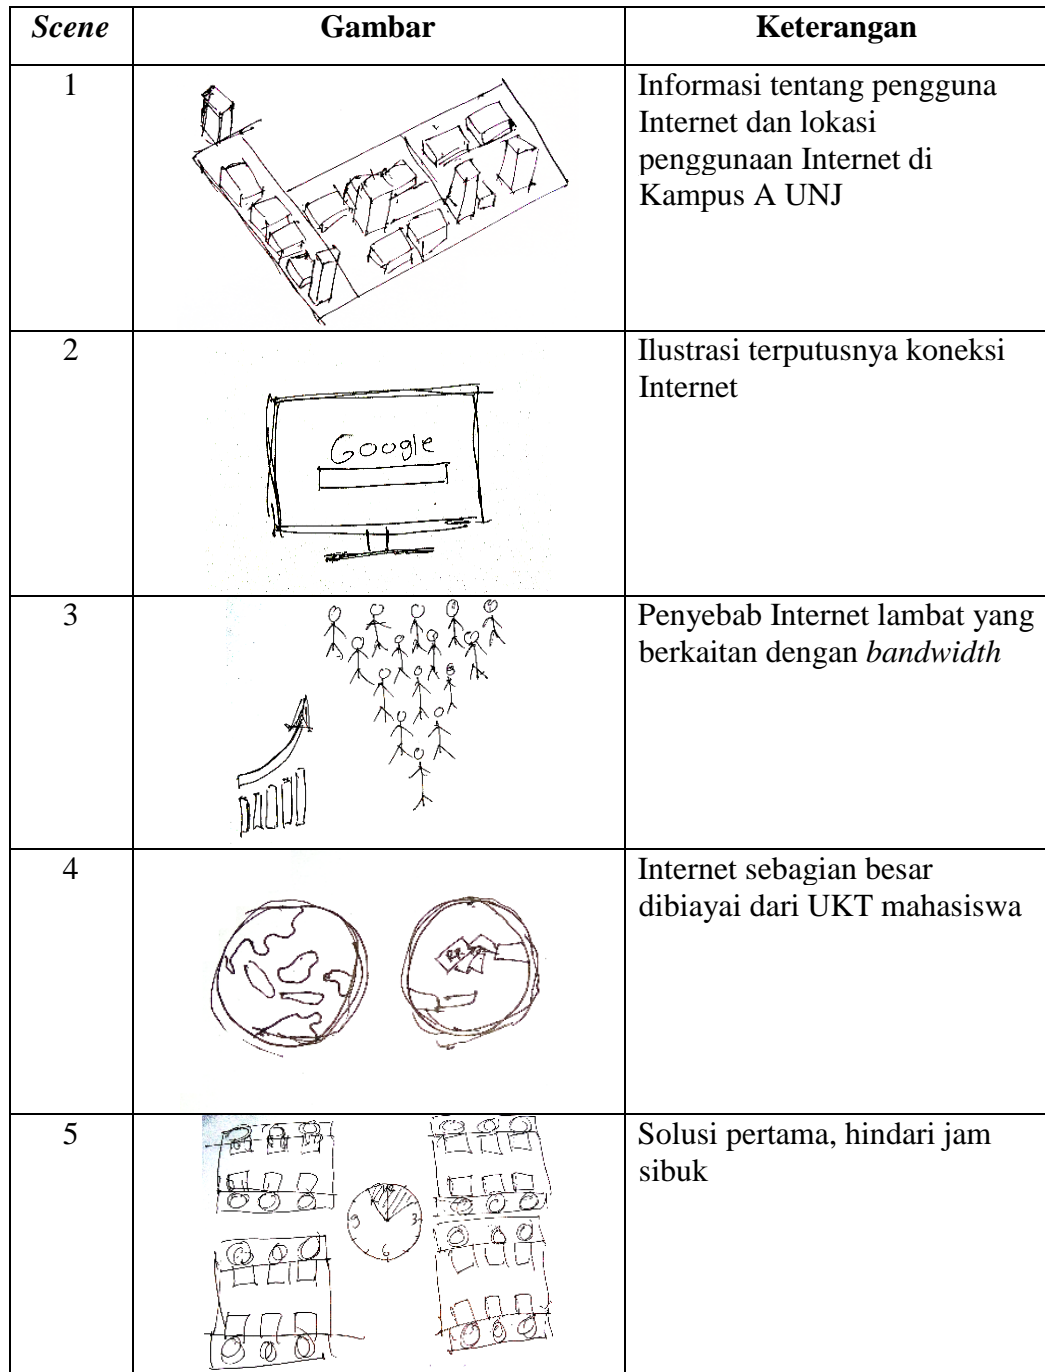 Scene Gambar Keterangan
1
Informasi tentang pengguna
Internet dan lokasi
penggunaan Internet di
Kampus A UNJ
2
Google
Ilustrasi terputusnya koneksi
Internet
3
Penyebab Internet lambat yang
berkaitan dengan bandwidth
4
Internet sebagian besar
dibiayai dari UKT mahasiswa
5
9 3
6
Solusi pertama, hindari jam
sibuk